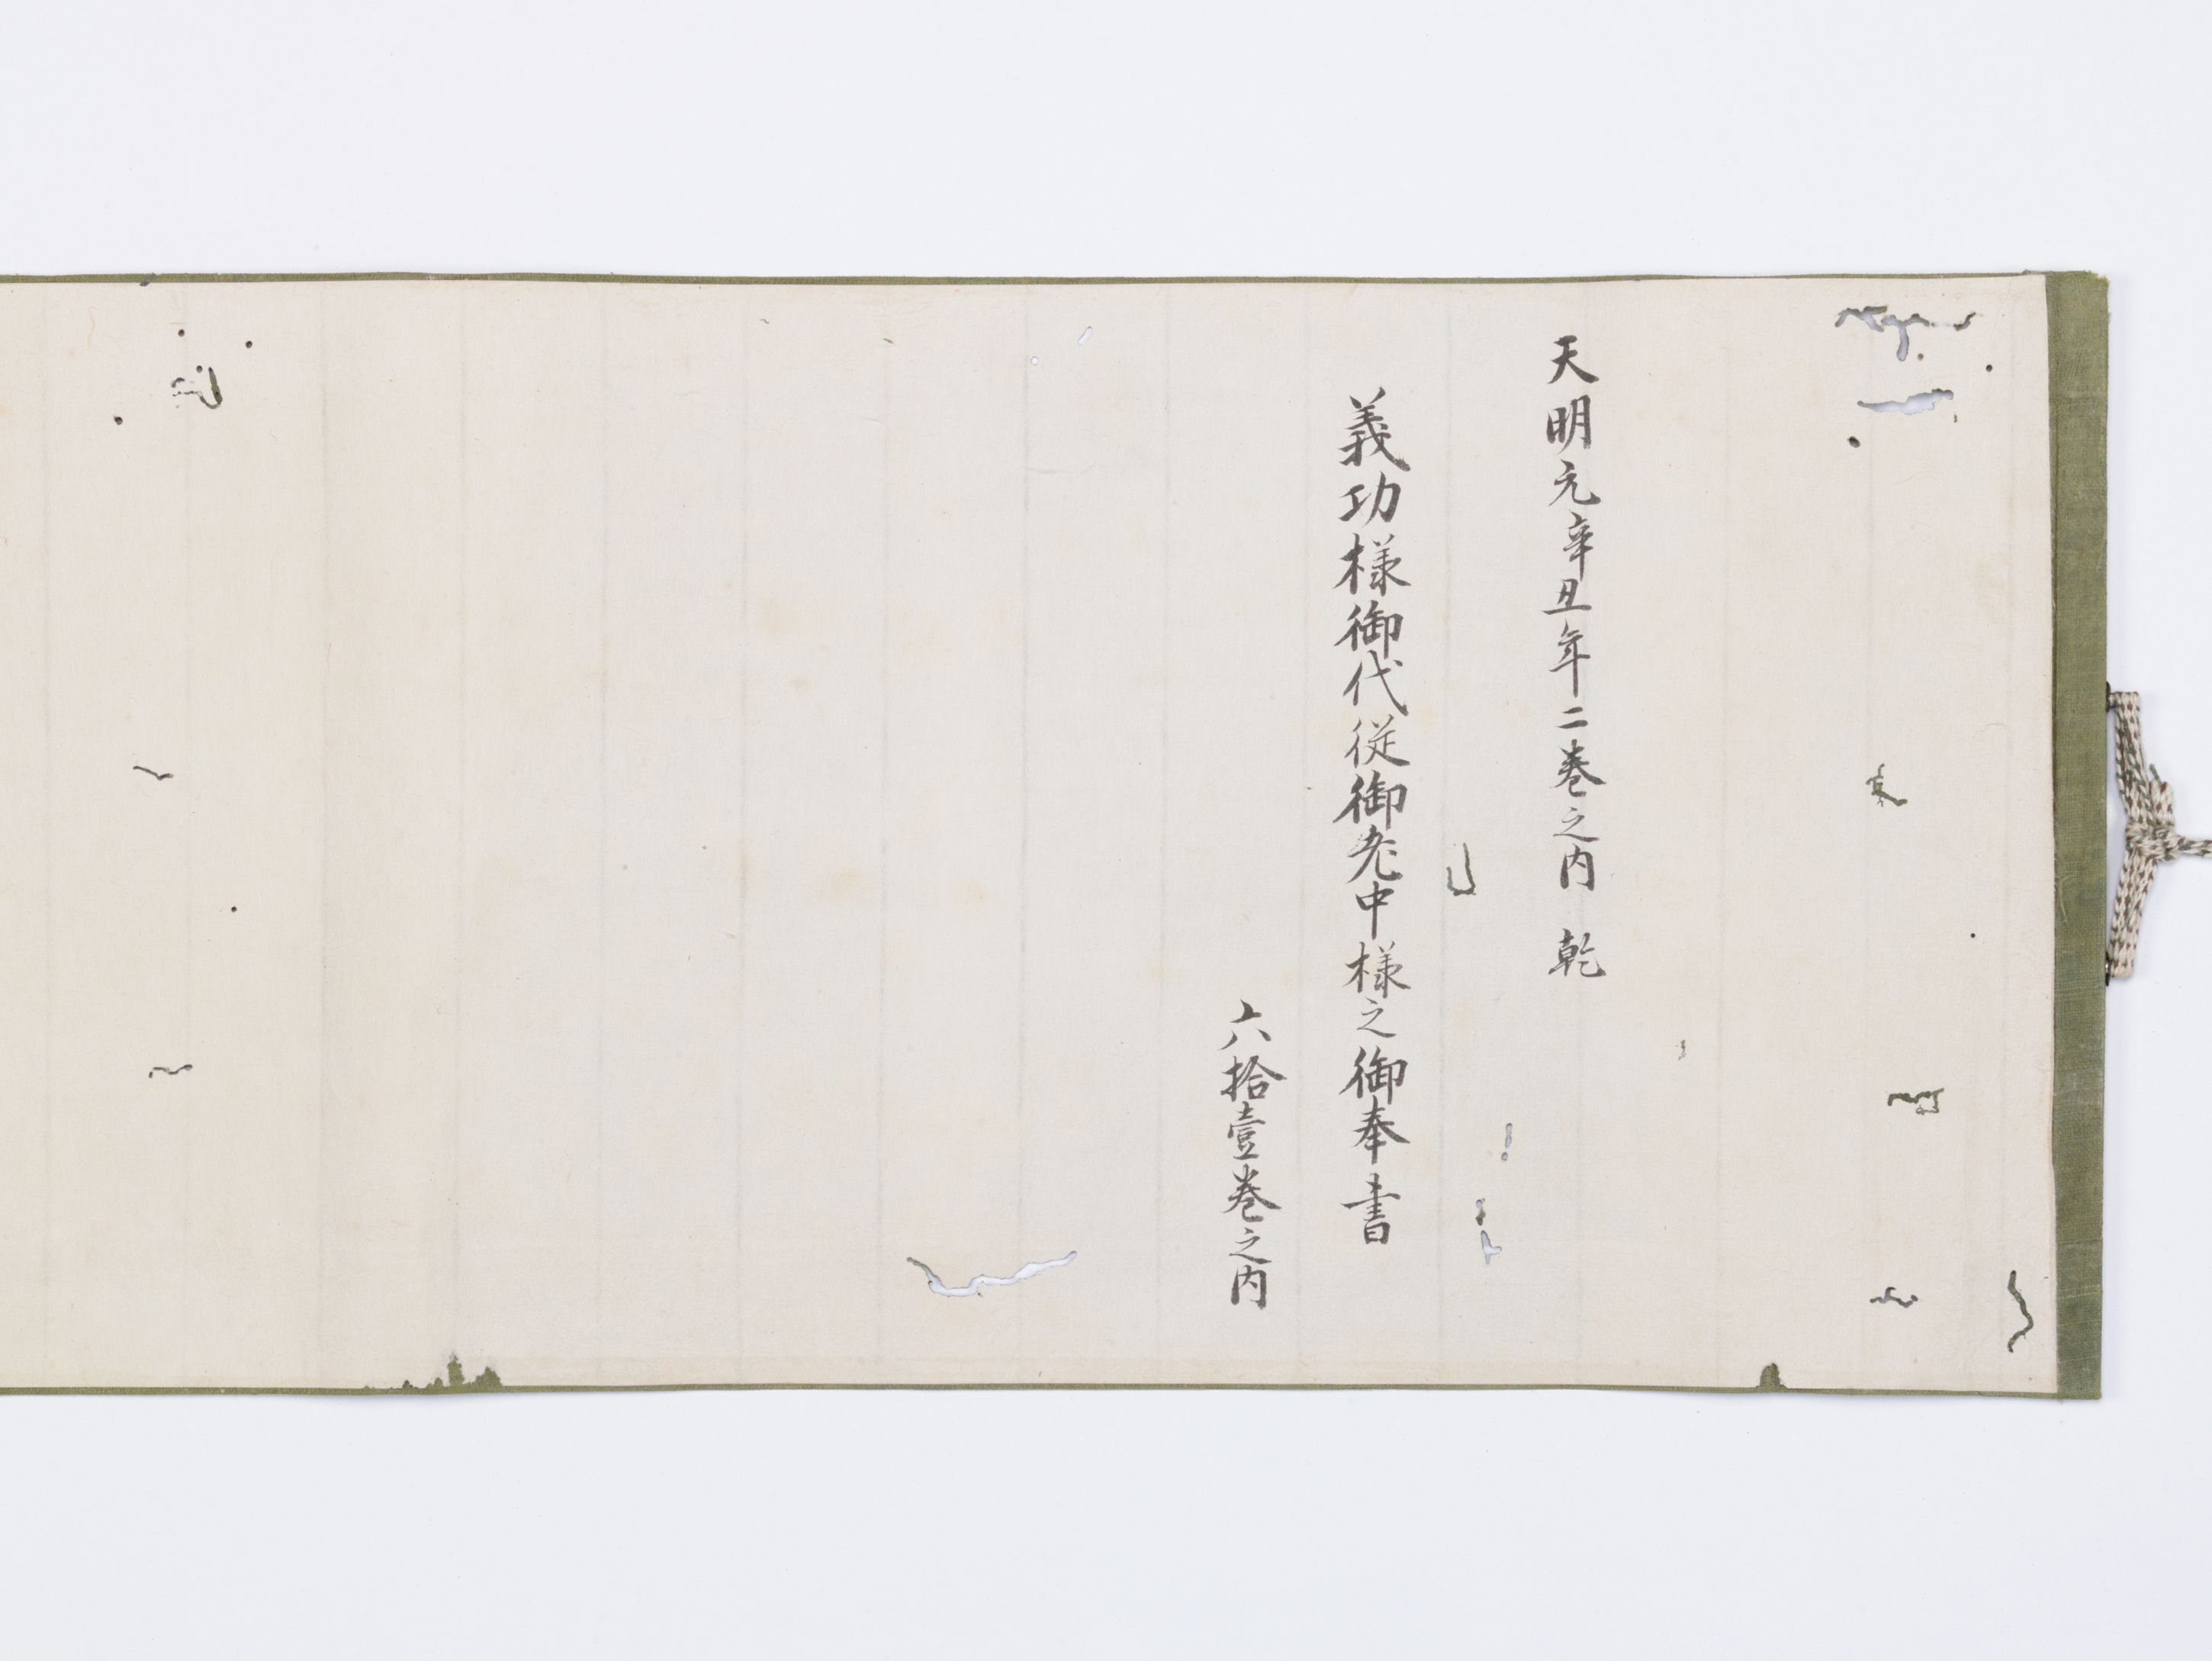 天明元辛丑年二巻之内　乾
義功様御代従御老中様之御奉書
六拾壹巻之内